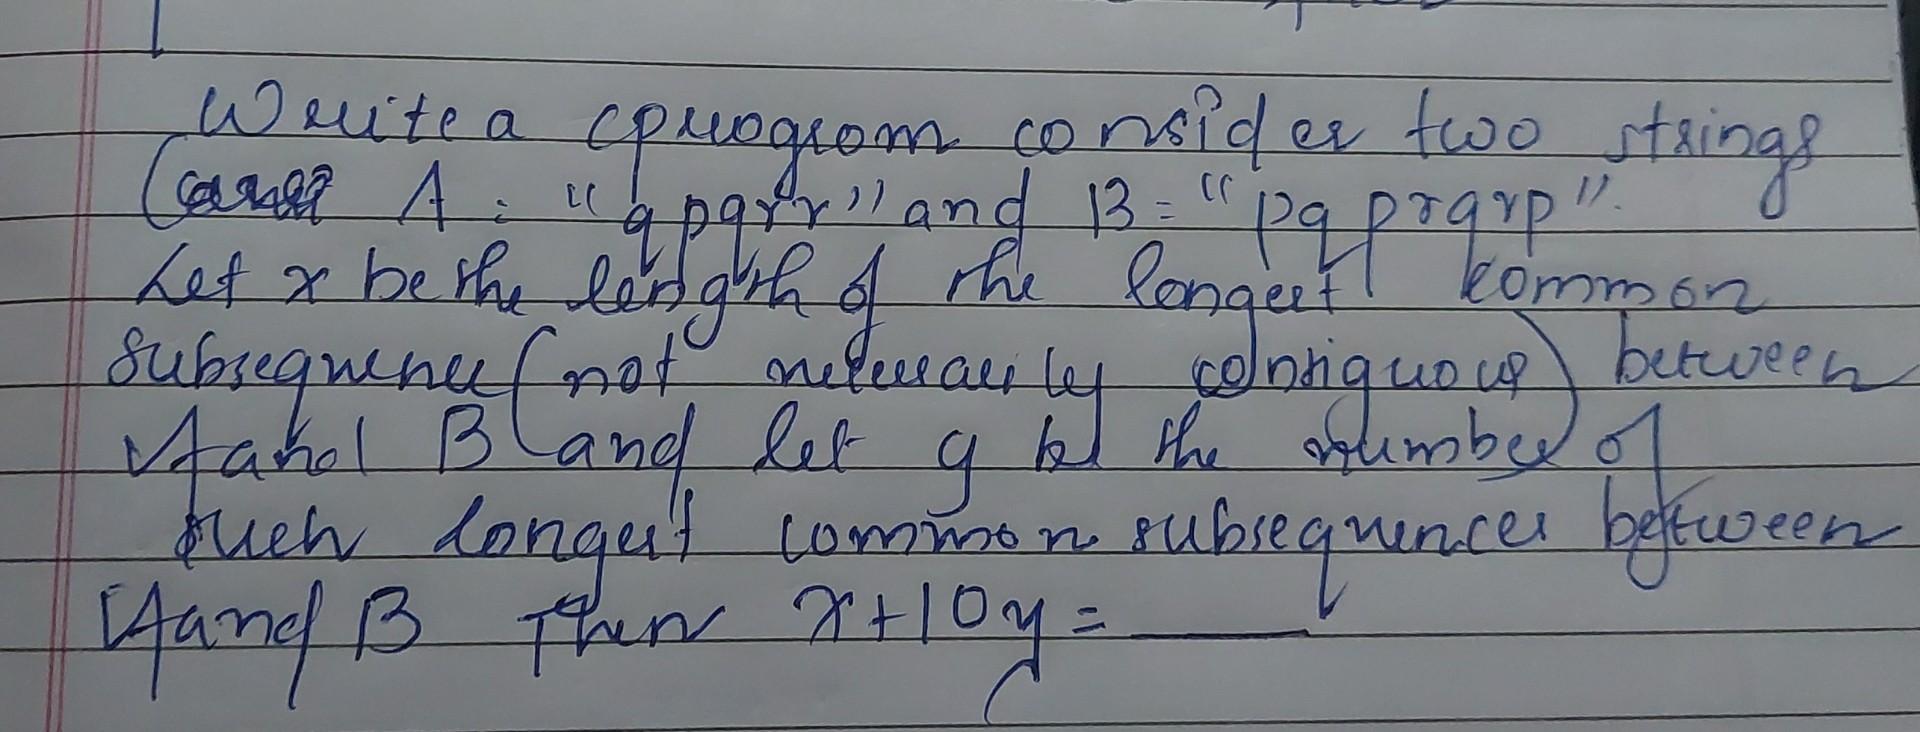 Write a cprogrom consider two strings
A = "qpqrr" and B = "pqprqrp".
Let x be the length of the longest common
subsequence (not necessarily contiguous) between
A and B and let y be the number of
such longest common subsequences between
A and B Then x+10y = ____